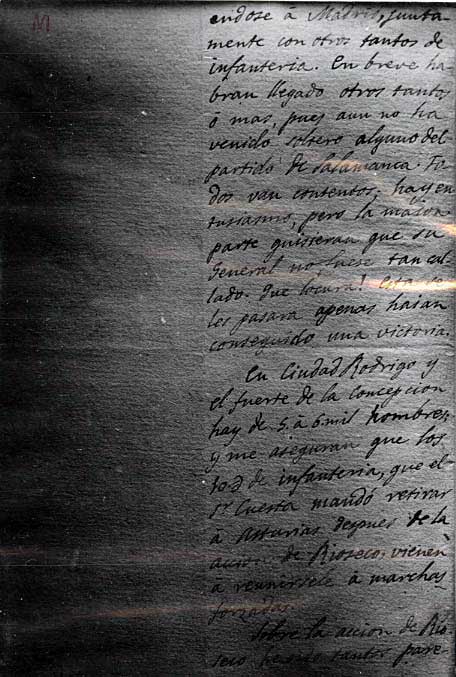 M
endose à Madrid, junta-
mente con otros tantos de
infanteria. En breve ha-
bran llegado otros tantos
ò mas, pues aun no ha
venido soltero alguno del
partido de Salamanca. To
dos van contentos: hay en
tusiasmo, pero la mayor
parte quisieran que su
General no fuese tan cal-
lado. Que locura! Esta se
les pasara apenas haian
conseguido una victoria.
En Ciudad Rodrigo y
el fuerte de la Concepcion
hay de 5. à 6 mil hombres;
y me aseguran que los
de infanteria, que el
Sr Cuesta mandó retirar
à Asturias despues de la
accion de Rioseco, vienen
à reunirsele à marchas
forzadas.
Sobre la accion de Rio-
seco he oido tantos pare-